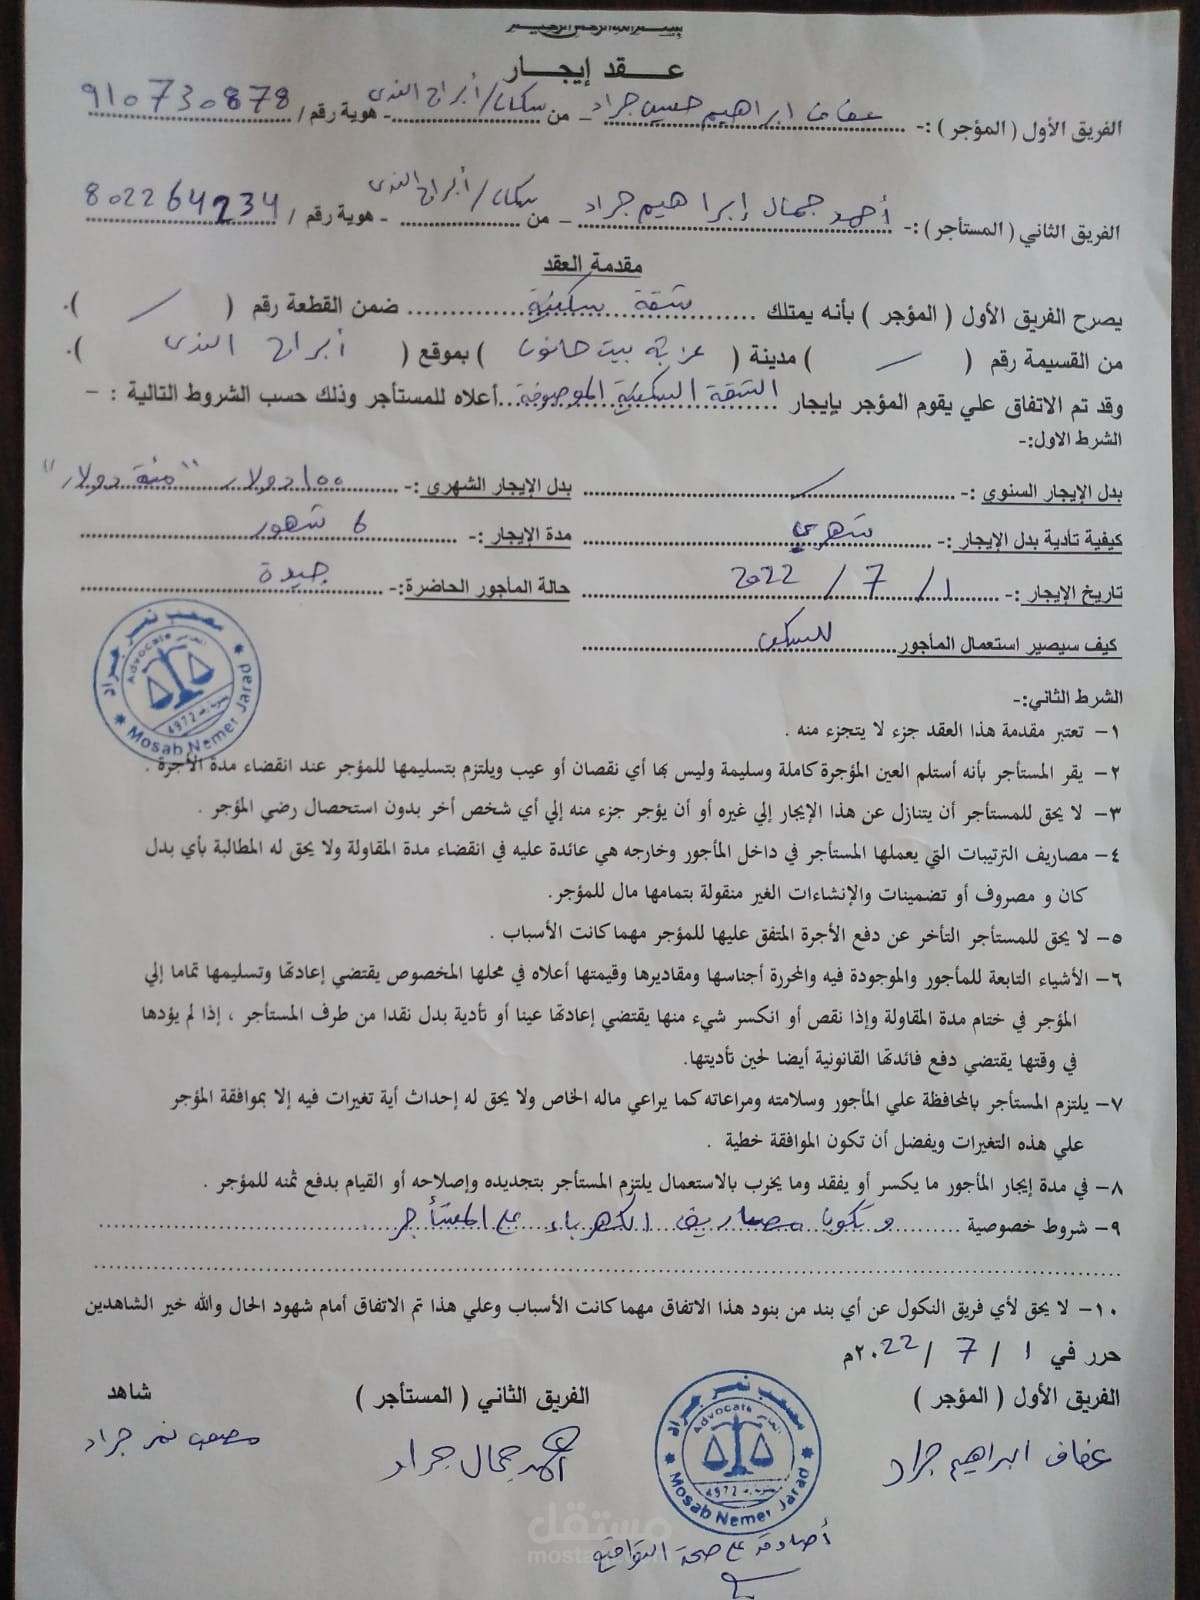 بسم الله الرحمن الرحيم
عقد إيجار
الفريق الأول ( المؤجر ) :- عفاف ابراهيم حسين جراد - من سكان/أبراج الندى - هوية رقم / 910730878
الفريق الثاني ( المستأجر ) :- أحمد جمال إبراهيم جراد - من سكان/أبراج الندى - هوية رقم / 802264234
مقدمة العقد
يصرح الفريق الأول ( المؤجر ) بأنه يمتلك شقة سكنية ضمن القطعة رقم ( / ).
من القسيمة رقم ( / ) مدينة ( عزبة بيت حانون ) بموقع ( أبراج الندى ).
وقد تم الاتفاق علي يقوم المؤجر بإيجار الشقة السكنية الموصوفة أعلاه للمستأجر وذلك حسب الشروط التالية : -
الشرط الاول:-
بدل الإيجار السنوي :- / بدل الإيجار الشهري :- 100 دولار "مئة دولار"
كيفية تأدية بدل الإيجار :- شهري مدة الإيجار :- 6 شهور
تاريخ الإيجار :- 1 / 7 / 2022 حالة المأجور الحاضرة:- جيدة
كيف سيصير استعمال المأجور للسكن
مصعب نمر جراد
Advocate المحامي
4972
Mosab Nemer Jarad
الشرط الثاني:-
١- تعتبر مقدمة هذا العقد جزء لا يتجزء منه .
٢- يقر المستأجر بأنه أستلم العين المؤجرة كاملة وسليمة وليس بها أي نقصان أو عيب ويلتزم بتسليمها للمؤجر عند انقضاء مدة الأجرة .
٣- لا يحق للمستأجر أن يتنازل عن هذا الإيجار إلي غيره أو أن يؤجر جزء منه إلي أي شخص أخر بدون استحصال رضي المؤجر .
٤- مصاريف الترتيبات التي يعملها المستأجر في داخل المأجور وخارجه هي عائدة عليه في انقضاء مدة المقاولة ولا يحق له المطالبة بأي بدل
كان و مصروف أو تضمينات والإنشاءات الغير منقولة بتمامها مال للمؤجر.
٥- لا يحق للمستأجر التأخر عن دفع الأجرة المتفق عليها للمؤجر مهما كانت الأسباب .
٦- الأشياء التابعة للمأجور والموجودة فيه والمحررة أجناسها ومقاديرها وقيمتها أعلاه في محلها المخصوص يقتضي إعادتها وتسليمها تماما إلي
المؤجر في ختام مدة المقاولة وإذا نقص أو انكسر شيء منها يقتضي إعادتها عينا أو تأدية بدل نقدا من طرف المستأجر ، إذا لم يؤدها
في وقتها يقتضي دفع فائدتها القانونية أيضا لحين تأديتها.
٧- يلتزم المستأجر بالمحافظة علي المأجور وسلامته ومراعاته كما يراعي ماله الخاص ولا يحق له إحداث أية تغيرات فيه إلا بموافقة المؤجر
علي هذه التغيرات ويفضل أن تكون الموافقة خطية .
٨- في مدة إيجار المأجور ما يكسر أو يفقد وما يخرب بالاستعمال يلتزم المستأجر بتجديده وإصلاحه أو القيام بدفع ثمنه للمؤجر .
٩- شروط خصوصية وتكون مصاريف الكهرباء على المستأجر
١٠- لا يحق لأي فريق النكول عن أي بند من بنود هذا الاتفاق مهما كانت الأسباب وعلي هذا تم الاتفاق أمام شهود الحال والله خير الشاهدين
حرر في 1 / 7 / ٢٠22م
الفريق الأول ( المؤجر ) الفريق الثاني ( المستأجر ) شاهد
عفاف ابراهيم جراد أحمد جمال جراد مصعب نمر جراد
مصعب نمر جراد
Advocate المحامي
4972
Mosab Nemer Jarad
أصادق على صحة التواقيع
مستقل